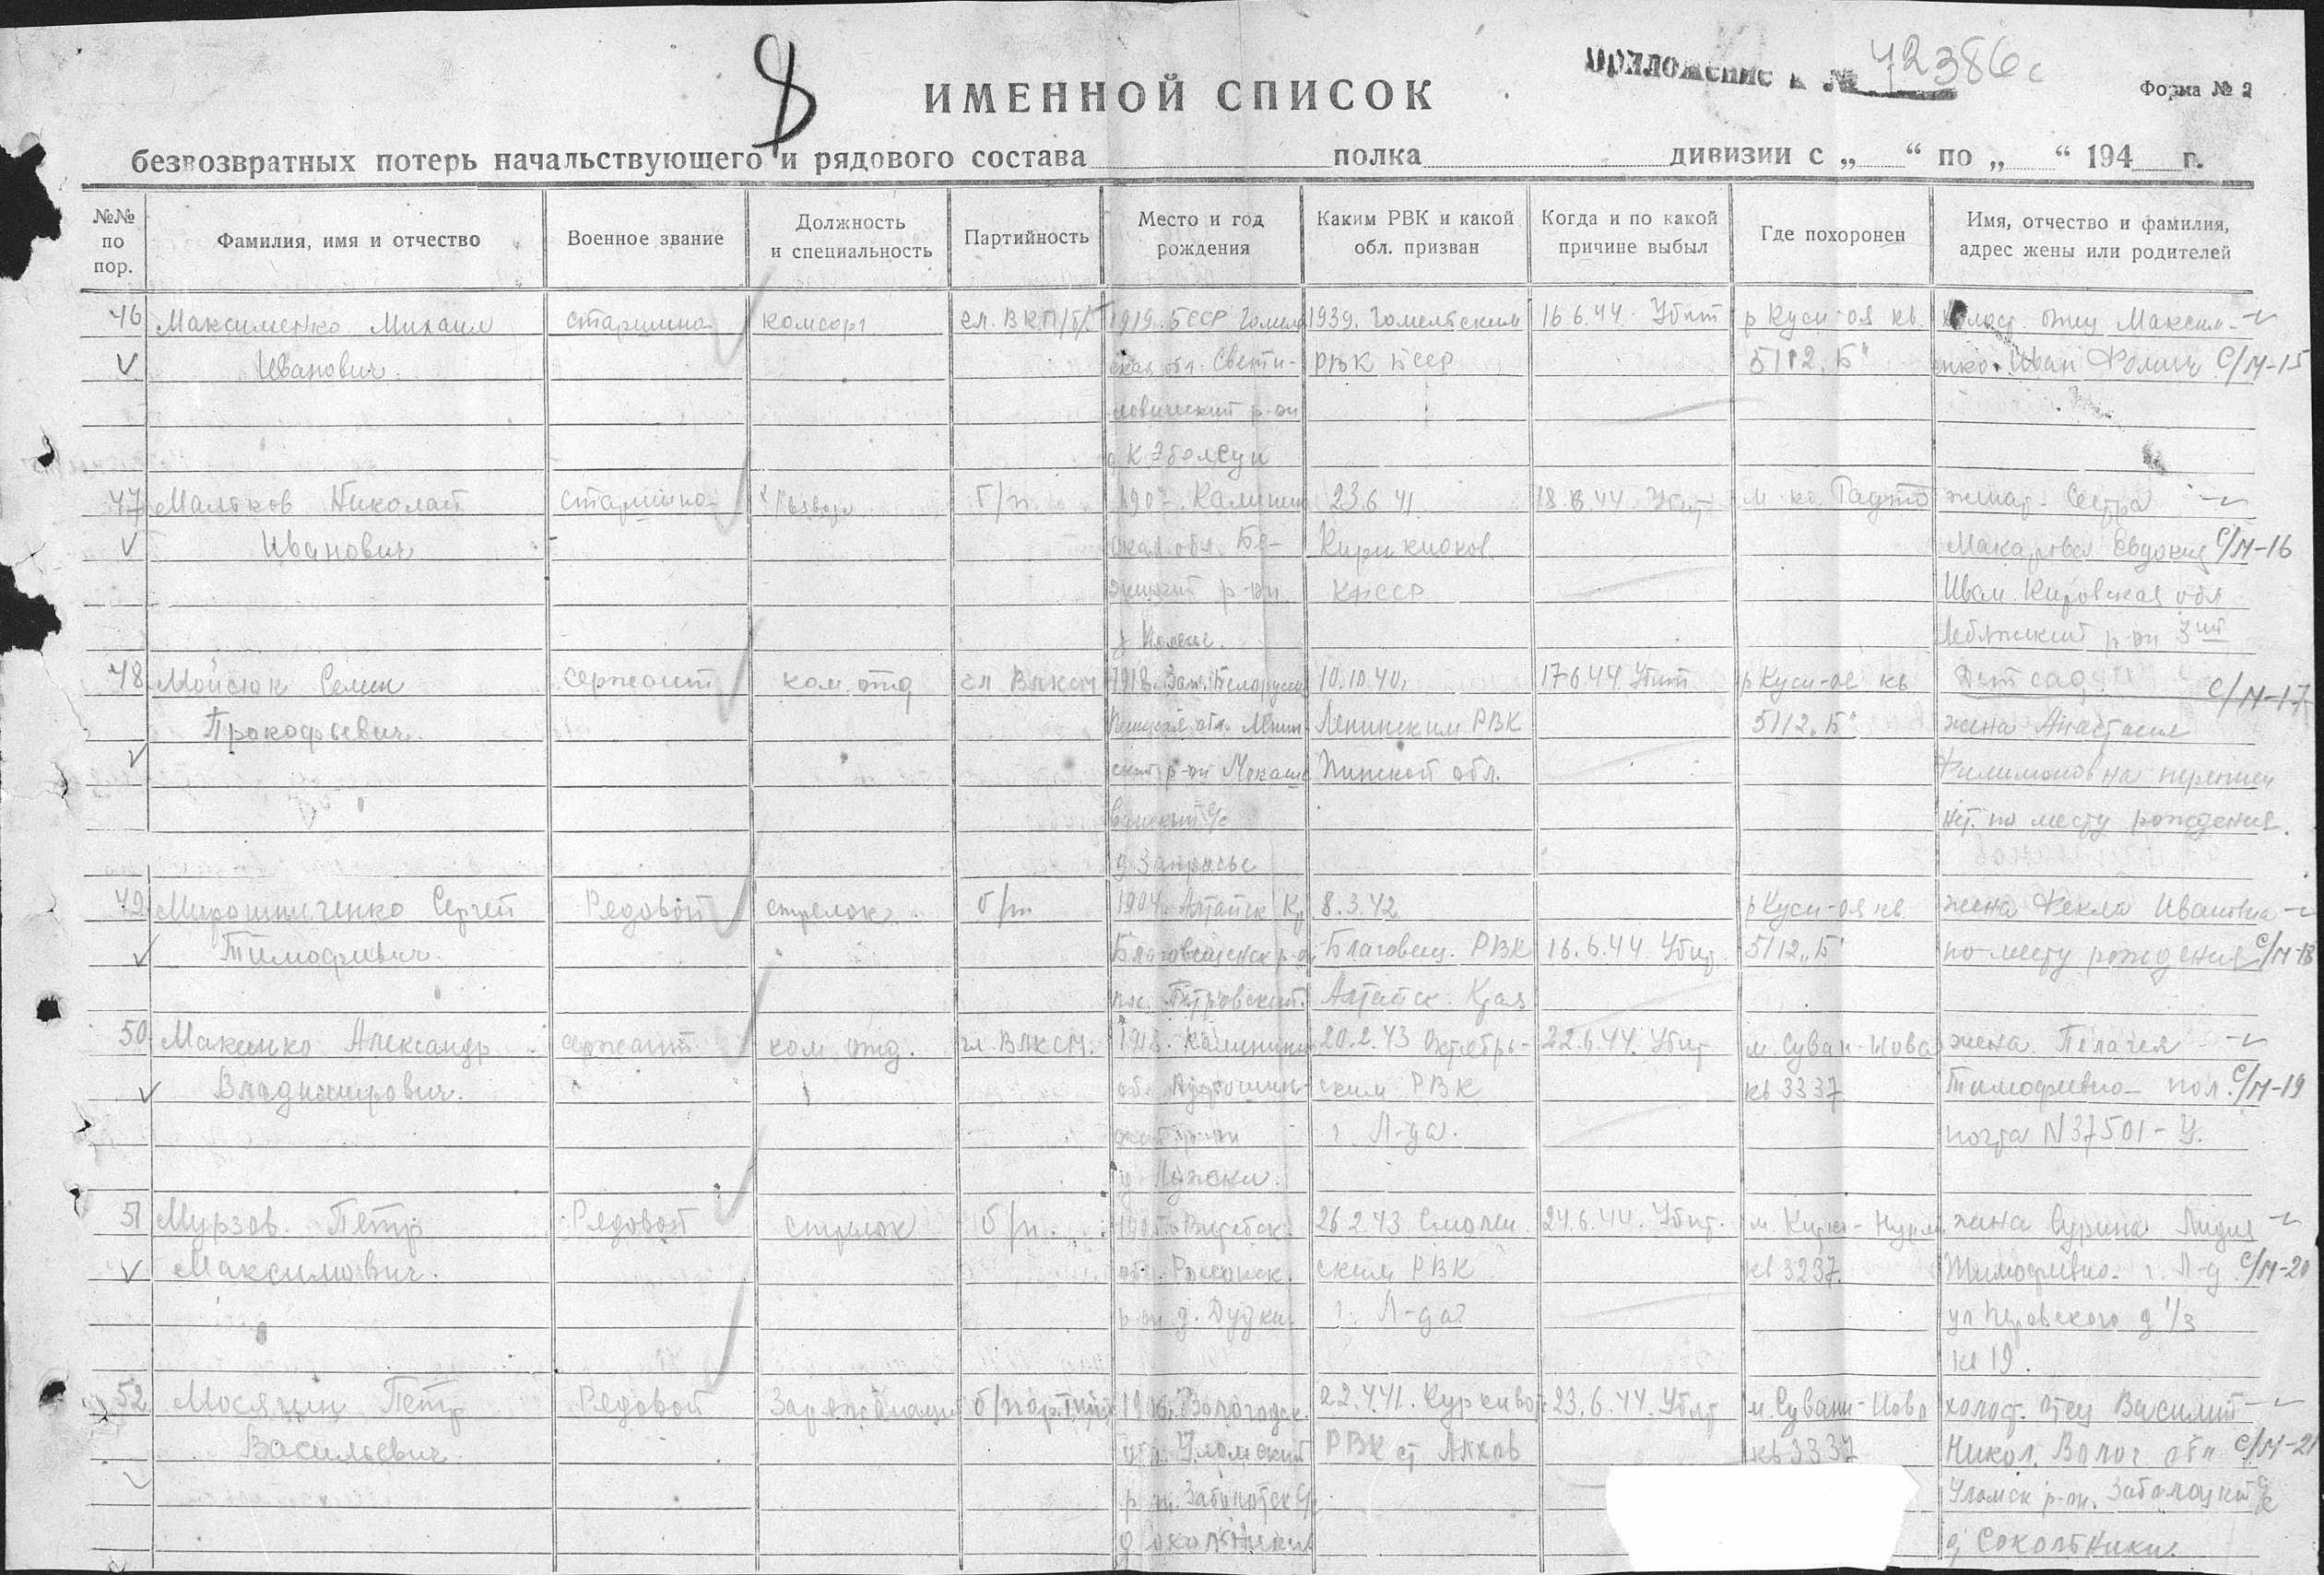 8
Приложение к № 42386с
Форма № 2
ИМЕННОЙ СПИСОК
безвозвратных потерь начальствующего и рядового состава полка дивизии с „ “ по „ “ 194 г.
№№ по пор.
Фамилия, имя и отчество
Военное звание
Должность и специальность
Партийность
Место и год рождения
Каким РВК и какой обл. призван
Когда и по какой причине выбыл
Где похоронен
Имя, отчество и фамилия, адрес жены или родителей
46 Максименко Михаил старшина комсорг чл. ВКП/б/ 1919. БССР Гомель 1939. Гомельским 16.6.44 Убит р Куси-оя кв. холост. отец Максим-
Иванович. ская обл. Свети- РВК БССР 5112 „Б“ енко Иван С/М-15
ловический р-он
47 Мальков Николай старшина б/п Калинин 23.6.41 18.6.44 Убит женат. Сестра
Иванович ская обл. Бе- Макарова Евдокия С/М-16
р-он КАССР Иван. Кировская обл
р-он 3ий
48 Мойсюк Семен сержант ком. отд чл ВЛКСМ 1918. Зап. Белоруссия 10.10.40. 17.6.44 Убит р Куси-ое кв Дет сад. С/М-17
Прокофьевич. Пинская обл. Ленин- Ленинским РВК 5112 „Б“ жена Анастасия
ский р-он Пинской обл. Филимоновна переписки
с/с нет. по месту рождения.
49 Мирошниченко Сергей Рядовой стрелок б/п 1904. Алтайск Кр 8.3.42 р Куси-оя кв. жена Фекла Ивановна
Тимофеевич. Благовещенск р-он Благовещ. РВК 16.6.44 Убит. 5112 „Б“ по месту рождения С/М-18
пос. Петровский. Алтайск. Края
50 Макеенко Александр сержант ком. отд. чл. ВЛКСМ. 1918. Калинин 20.2.43 Октябрь- 22.6.44. Убит м. Суван-Нова жена Пелагея
Владимирович. обл. Пустошкин- ским РВК кв 3337 Тимофеевна пол. С/М-19
ский р-он г. Л-да. почта N 37501-У.
51 Мурзов. Петр Рядовой стрелок б/п. 1905. Витебск. 26.2.43 Смольн. 24.6.44. Убит. жена Лидия
Максимович. обл. Россонск. ским РВК кв 3237 Тимофеевна. г. Л-д С/М-20
р-он д. Дудки. г. Л-да ул Перовского д 1/3
кв 19.
52 Мосягин Петр Рядовой Заряжающий б/партийн Вологодск. 22.4.41. Куркиво 23.6.44. Убит м. Суван-Нова холост. отец Василий
Васильевич. обл. Уломский РВК кв 3337 Никол. Волог обл С/М-21
р-он. Заболотск с/с Уломск р-он. Заболоцкий с/с
д Сокольники д Сокольники.